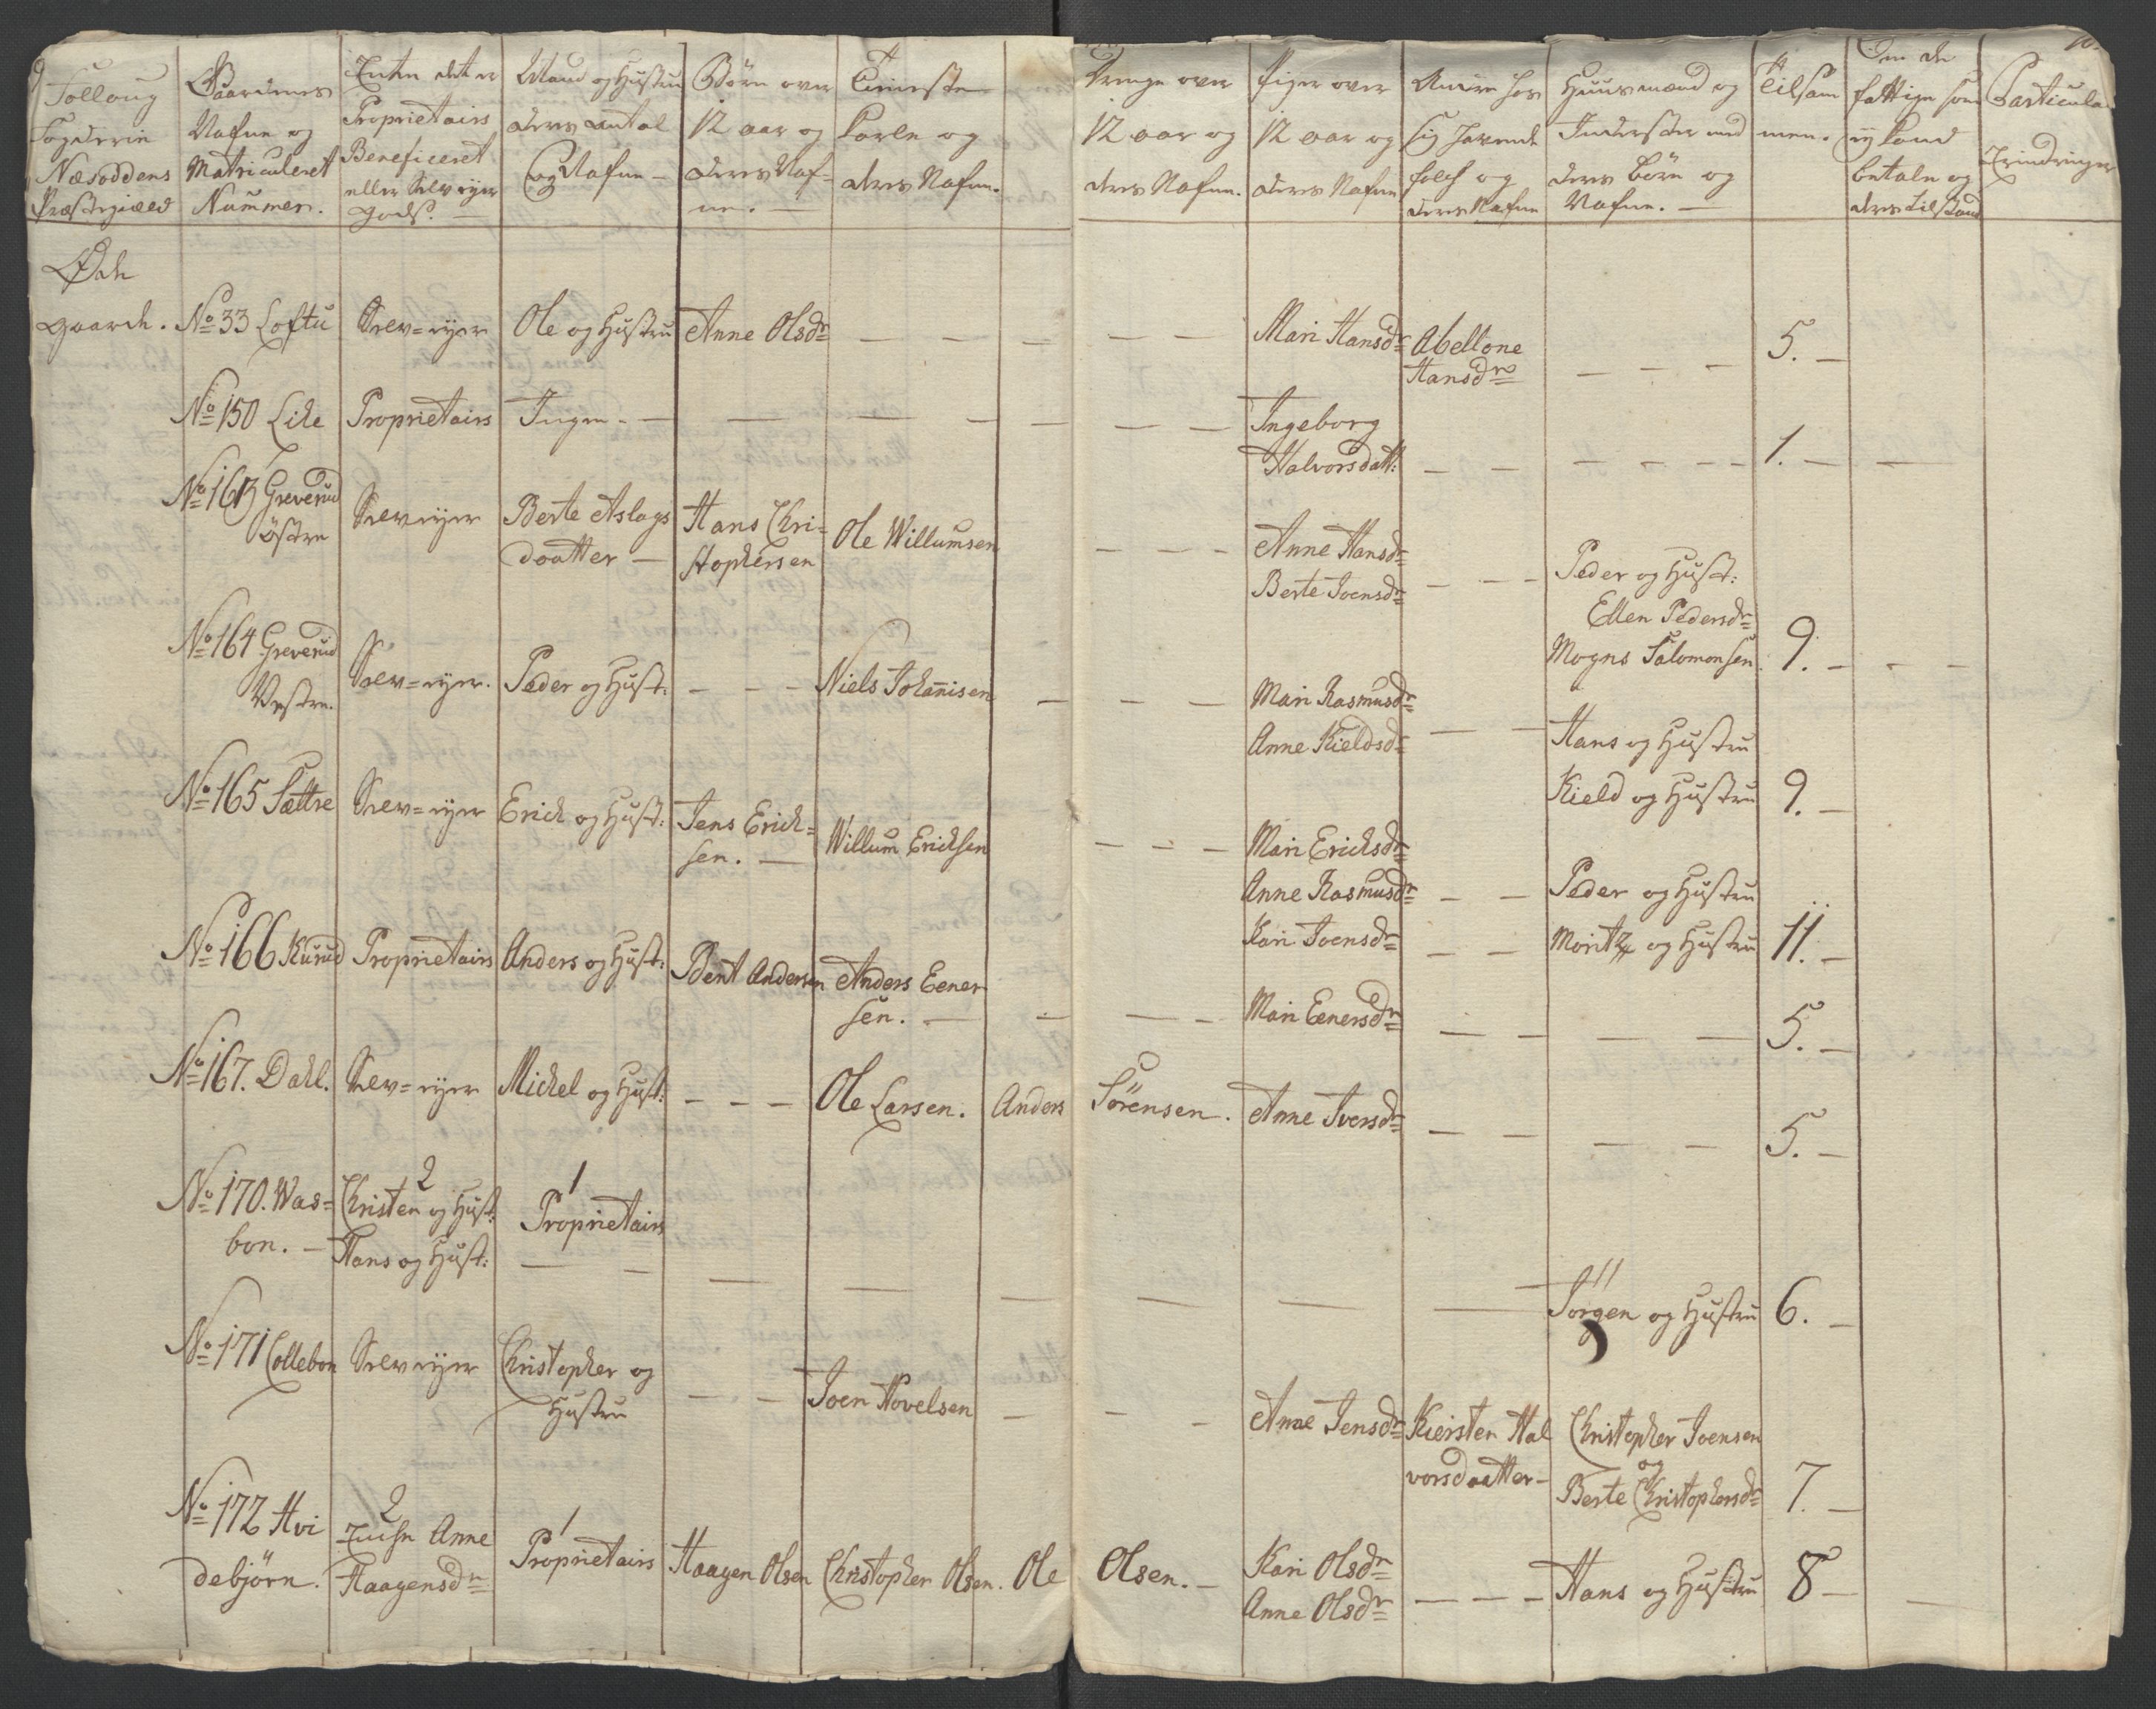 Folloug
Fogderie
Næsoddens
Præstegield
Gaardenes
Nafne og
Matriculeret
Nummer.
Enten det er
Proprietairs
Beneficeret
eller Selv eyer
gods.
Mand og Hustru
deres Antal
og Nafne
Börn over
12 aar og
deres Naf-
ne.
Tieniste
Karle og
deres Nafne.
Drenge over
12 aar og
deres Nafne.
Piger over
12 aar og
deres Nafne
Andre hos
sig havende
folck og
deres Nafne
Huusmænd og
Inderster med
deres Börn og
Nafne.
Tilsam
men.
Om de
fattige som
ey kand
betale og
deres tilstand
Particulair
Erindringer
Öde
gaarde. No 33 Loftu Selv=eyer Ole og Hustru Anne Olsdr — — — — — Mari Hansdr Abellone
Hansdr — — — 5. —
No 150 Like Proprietairs Ingen. — — — — — — — Ingeborg
Halvorsdatt: — — — — — — 1. — —
No 163 Greverud
östre Selveyer Berte Aslags
daatter — Hans Chri=
stophersen Ole Willumsen — — — Anne Hansdr
Berte Joensdr — — — Peder og Hust:
Ellen Pedersdr
Mogns Salomonsen. 9. — — —
No 164 Greverud
Vestre. Selv=eyer. Peder og Hust: — — — Niels Johañisen — — — Mari Rasmusdr
Anne Kieldsdr — — Hans og Hustru
Kield og Hustru 9. —
No 165 Sættre Selv=eyer Erick og Hust: Jens Erick=
sen. — Willum Ericksen — — — Mari Ericksdr
Anne Rasmusdr — — Peder og Hustru
Kari Joensdr — — Moritz og Hustru 11. —
No 166 Kurud Proprietairs Anders og Hust: Bent Andersen Anders Eener
sen. — — — — Mari Eenersdr — — — — 5. —
No 167. Dahl. Selv=eyer Michel og Hust: — — — Ole Larsen. Anders Sörensen. Anne Iversdr — — — — 5. —
No 170. Was=
bon. — 2
Christen og Hust:
Hans og Hust: 1
Proprietairs
— — — — — — — — Jorgen og Hustru 6. —
No 171 Collebon Selveyer Christopher og
Hustru — — Joen Povelsen — — — Anne Jensdr Kiersten Hal
vorsdaatter — Christopher Joensen
og
Berte Christophersdr 7. —
No 172 Hvi
debjörn. 2
Encke Anne
Haagensdr 1
Proprietairs Haagen Olsen Christopher Olsen. Ole Olsen. — Kari Olsdr
Anne Olsdr — — — Hans og Hustru 8 — —